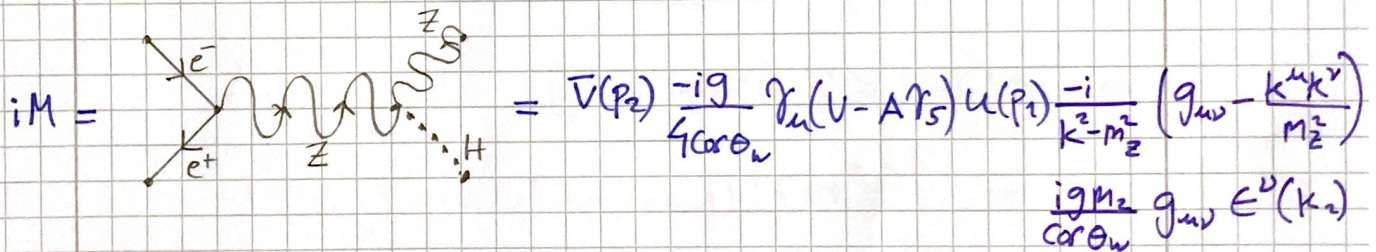 e⁻ Z
iM = = v̄(p₂) -ig/4cosθ_w γ_μ(V - Aγ₅) u(p₁) -i/k²-m_z² (g_μν - k^μ k^ν/m_z²)
e⁺ Z H
igm_z/cosθ_w g_μν ϵ^ν(k₂)